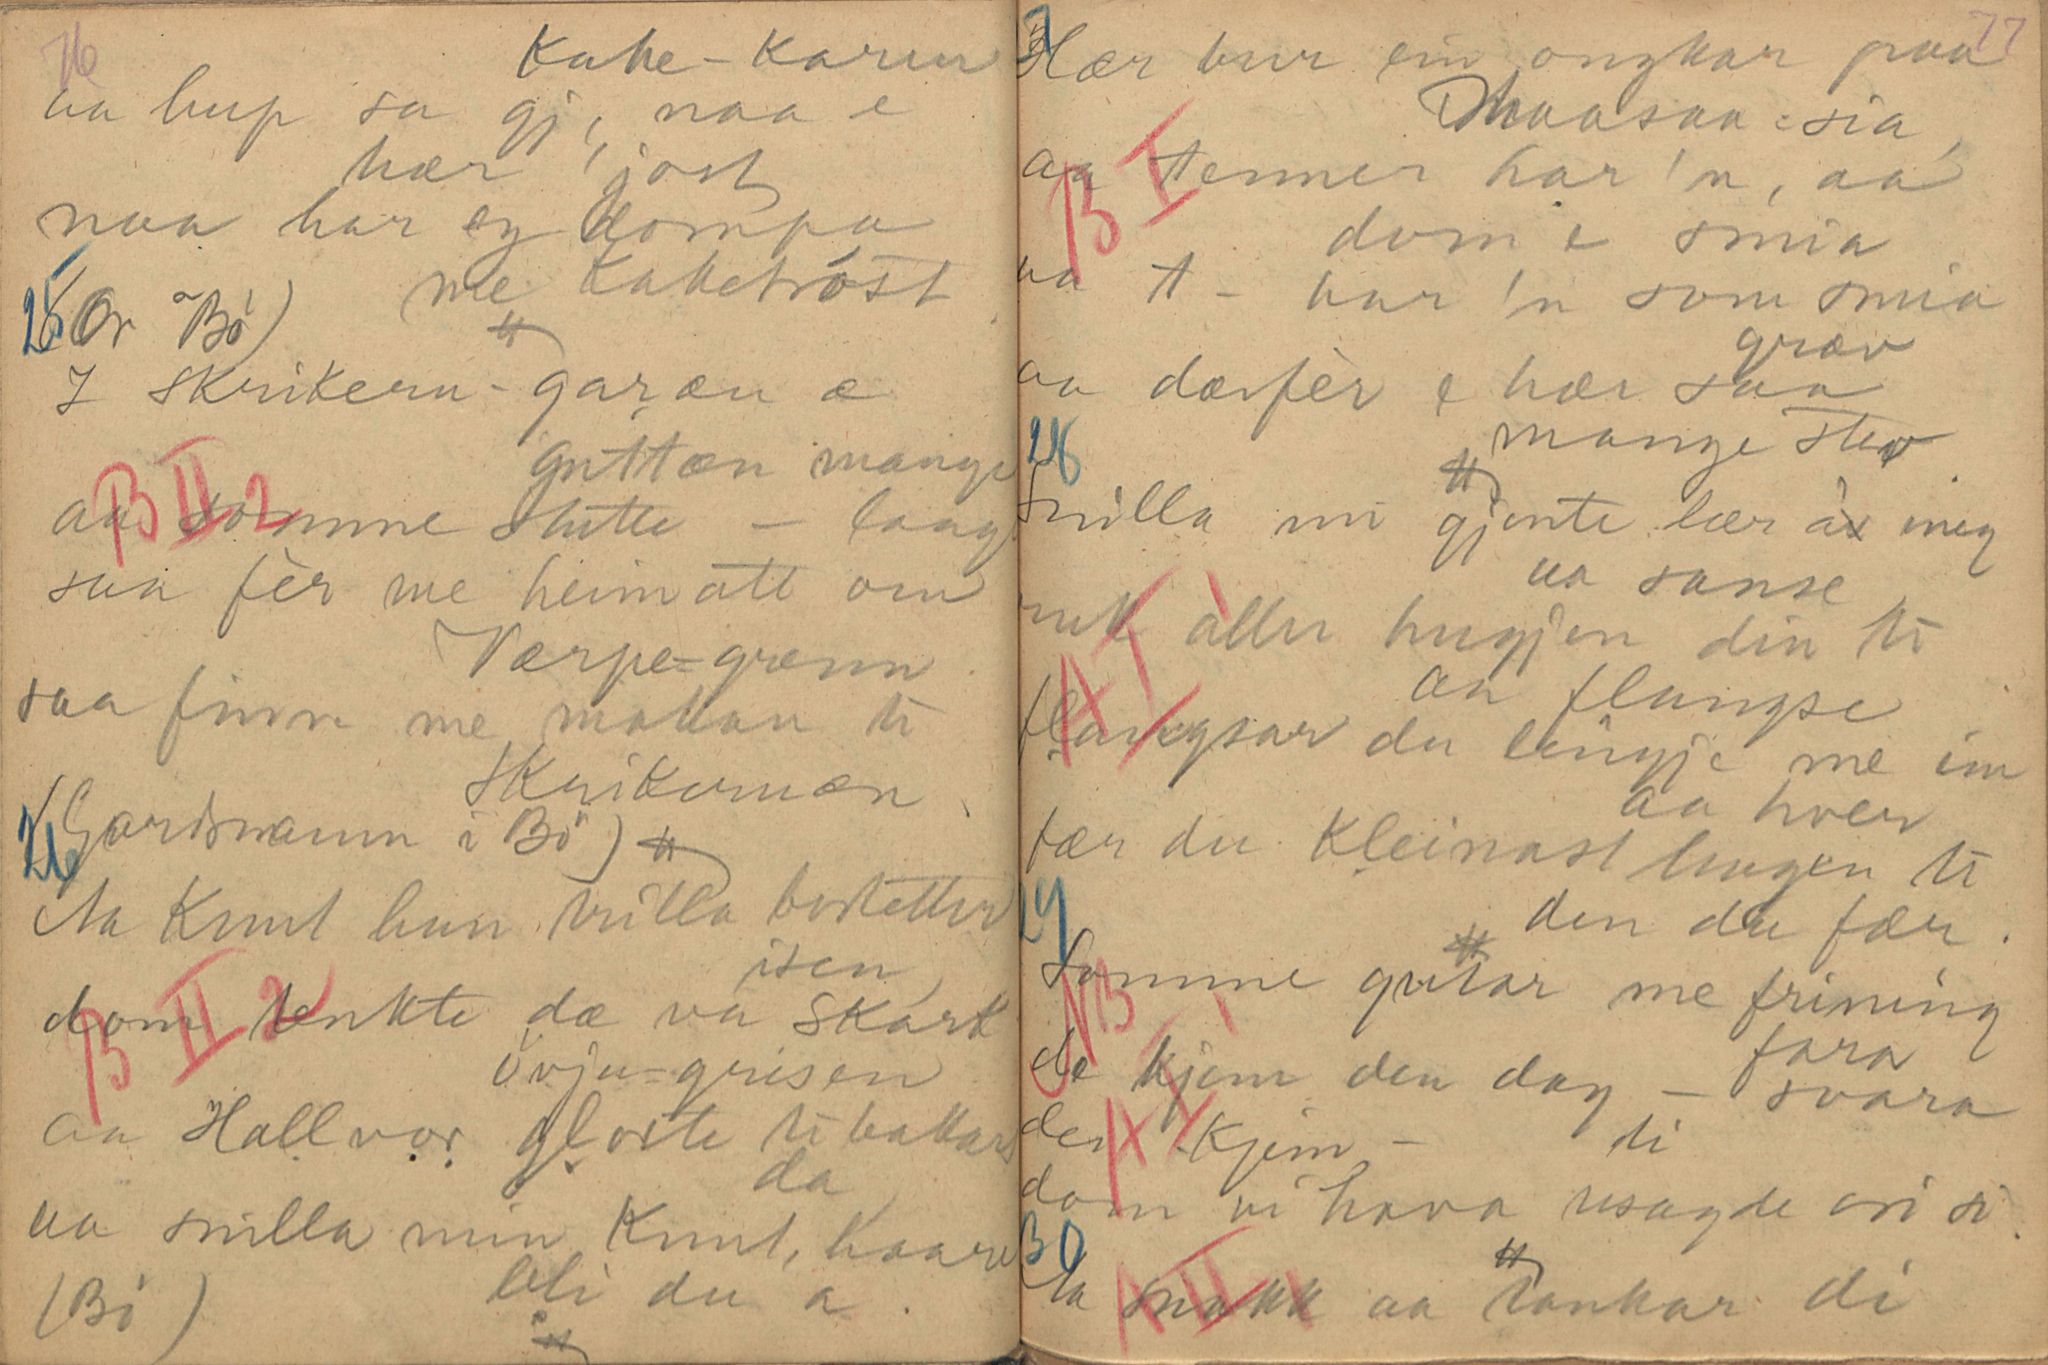 76
Kake-Karen
aa hup sa gj, naa e
hær jost
naa har eg dompa
me Kaketröst.
25 (Or Bö)
I Skrikeru-garæn æ
guttæn mange
B II 2
aa somme stutte - lang
saa fèr me heimatt om
Værpe-grenn
saa finn me makan ti
Skrikeruæn.
26 (Gardsnamn i Bö)
Aa Knut han trilla bortetter
isen
dom tenkte dæ va Skark
B II 2
övju-grisen
aa Hallvor glorte tibakars
da
aa snilla min Knut, haare
bli du a.
(Bö)
77
27
Hær bur ein ongkar paa
Maasaa-sia,
aa tenner har 'n, aa
B I
dom e smia
aa t - har 'n som smia
græv
aa dærfèr e hær saa
mange stev.
28
Snilla mi gjente lær av meg
aa sanse
aller hugjen din ti
A I 1
aa flangse
flangsar du lengje me ein
aa hver
fær du Kleinast hugen ti
den du fær.
29
Somme gutar me frining
NB
fara
de kjem den dag - svara
A I 1
den Kjem - ti
dom vi hava usagde ori si.
30
Aa snakk aa tankar di
A II 1